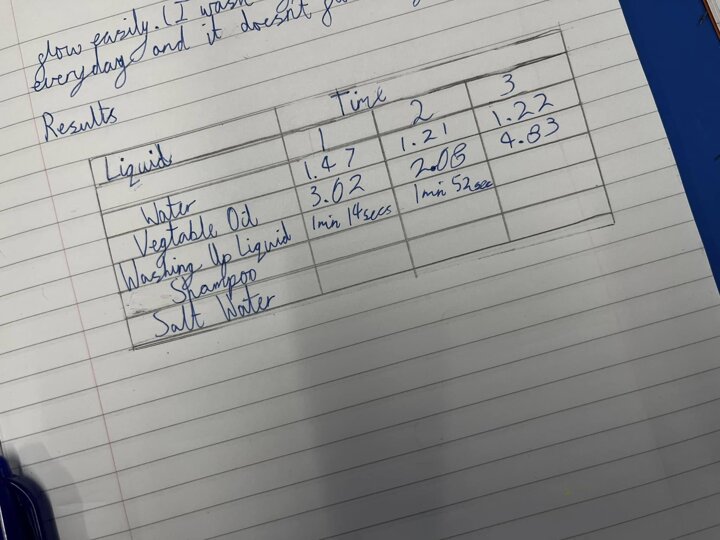 glow easily. (I wasn
everyday and it doesnt
Results
Liquid Time
1 2 3
Water 1.47 1.21 1.22
Vegtable Oil 3.02 2.08 4.83
Washing Up Liquid 1min 14secs 1min 52sec
Shampoo
Salt Water